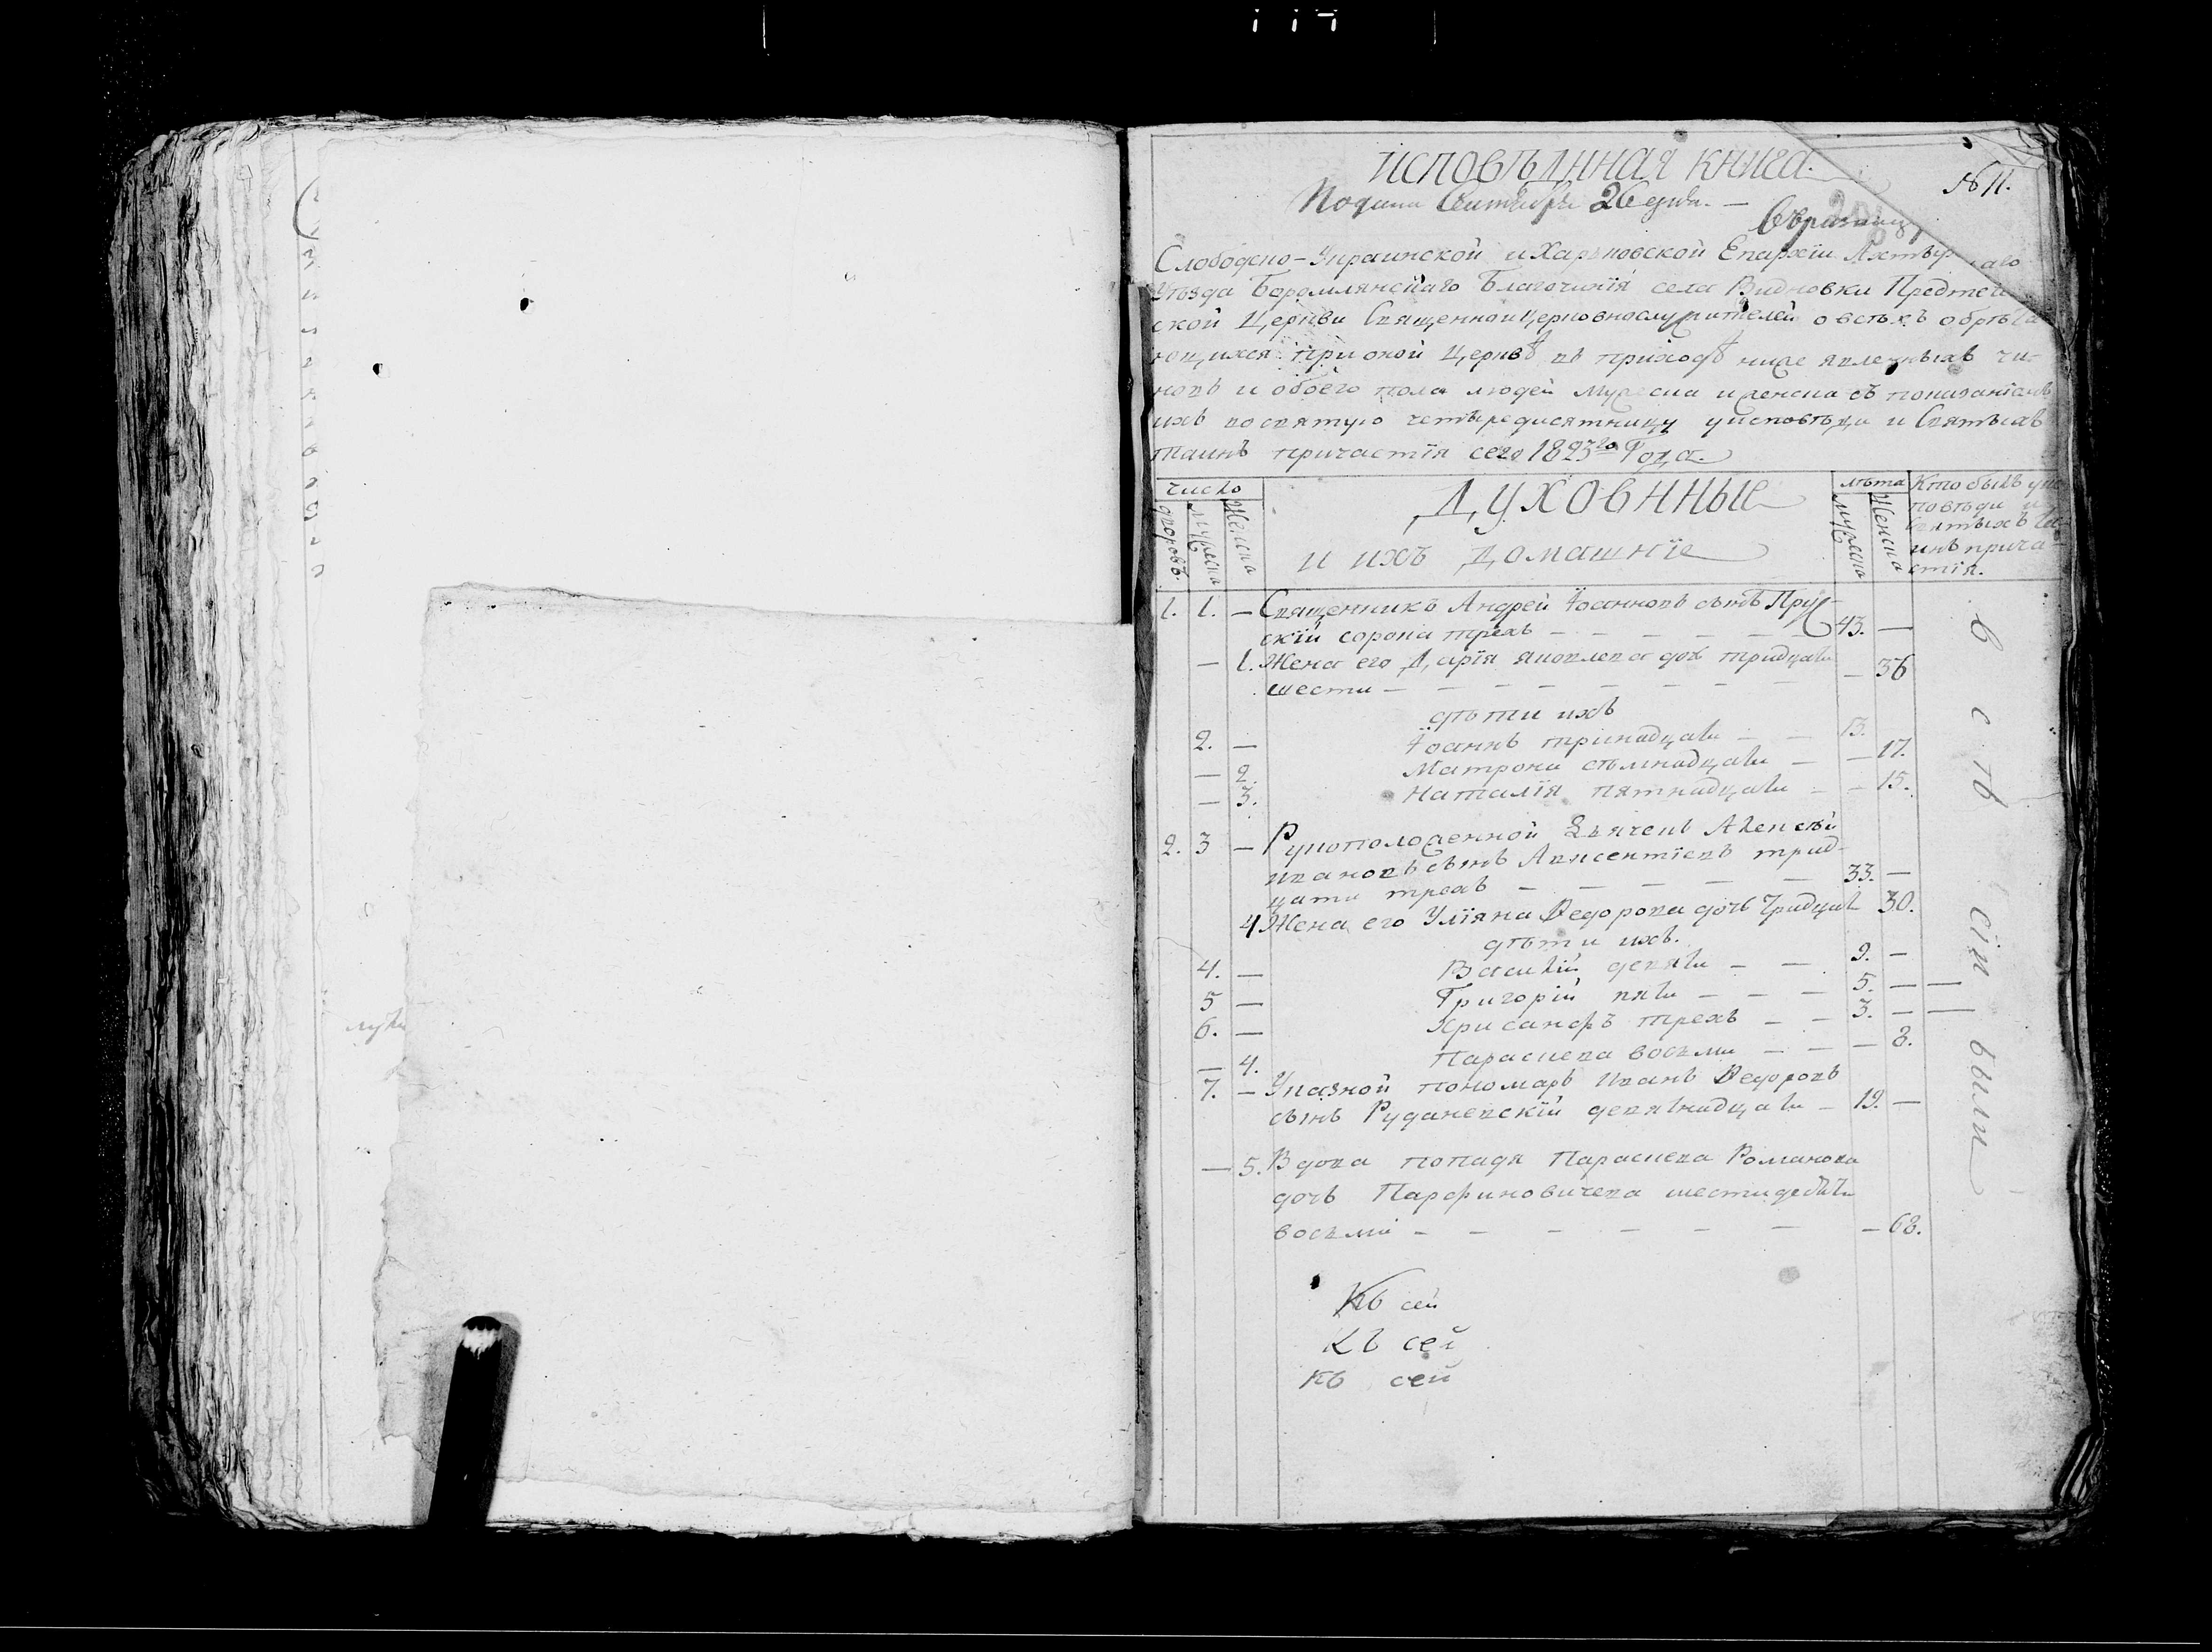 ИСПОВѢДННАЯ КНИГА.
№ 11.
Подана Сентября 26 дня. —
Слободско-Украинской и Харьковской Епархїи Ахтыр каго
Уѣзда Боромлянскаго Благочинїя села Видновки Предтеи
ской Церкви Священно и церковнослужителей о всѣхъ обрѣта
ющихся при оной Церквѣ въ приходѣ ниже явленныхъ чи-
новъ и обоего пола людей мужеска и женска съ показанїемъ
ихъ во святую четыредисятницу у исповѣди и Святыхъ
таинъ причастїя сего 1823го Года.
число
дворовъ.
мужеска
женска
ДУХОВННЫЕ
и ихъ домашнїе
лѣта
мужеска
женска
Кто былъ у ис
повѣди и
святыхъ та
инъ прича-
стїя.
1. 1. — Священникъ Андрей Їоанновъ сынъ Пру-
скїй сорока трехъ — — — — — — 43. —
— 1. Жена его Дарїя Яковлева доч тридцати
шести — — — — — — — — — 36
дѣти ихъ
2. — Їоаннъ тринадцати — — 13.
— 2. Матрона сѣмнадцати — — 17.
— 3. Наталїя пятнадцати — — 15.
2. 3 — Рукоположенной Дьячекъ Алексѣй
Ивановъ сынъ Авксентїевъ трид-
цати трехъ — — — — — 33. —
4 Жена его Улїяна Ѳедорова дочь тридцати 30.
дѣти ихъ.
4. — Василїй девяти — — 9. —
5 — Григорїй пяти — — — 5. — —
6. — Хрисанфъ трехъ — — 3. — —
— 4. Параскева восьми — — — 8.
7. — Указной пономарь Иванъ Ѳедоровъ
сынъ Рудановскїй девятнадцати — 19. —
— 5. Вдова попадя Параскева Романова
дочь Парфиновичева шестидесяти
восьми — — — — — — — 68.
В с ѣ сїи были
Къ сей
Къ сей
Къ сей